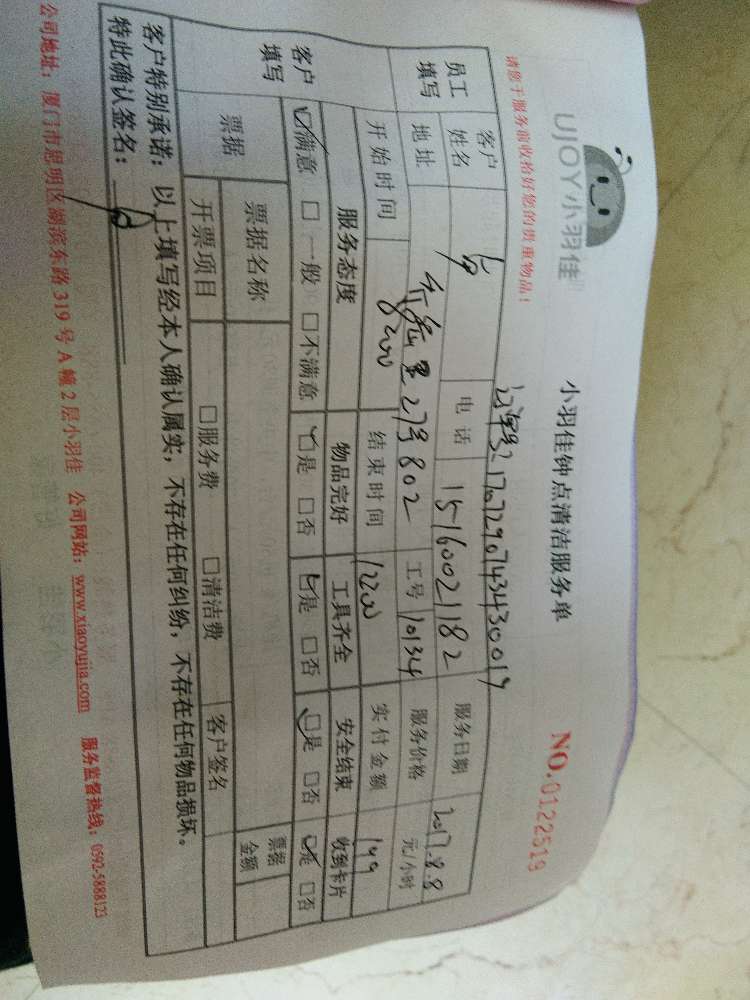 UJOY小羽佳
小羽佳钟点清洁服务单
NO.0122519
请您于服务前收拾好您的贵重物品!
订单号:1707290743430019
员工填写
客户姓名
电话 15160021182
服务日期 2017.8.8
地址 27号802
工号 10134
服务价格 元/小时
开始时间 8:00
结束时间 1200
实付金额 149
客户填写
服务态度 物品完好 工具齐全 安全结束 收到卡片
☑满意 □一般 □不满意 ☑是 □否 ☑是 □否 ☑是 □否 ☑是 □否
票据
票据名称
票据金额
开票项目 □服务费 □清洁费 客户签名
客户特别承诺:以上填写经本人确认属实,不存在任何纠纷,不存在任何物品损坏。
特此确认签名:
公司地址:厦门市思明区湖滨东路319号A幢2层小羽佳 公司网站:www.xiaoyujia.com 服务监督热线:0592-5888123